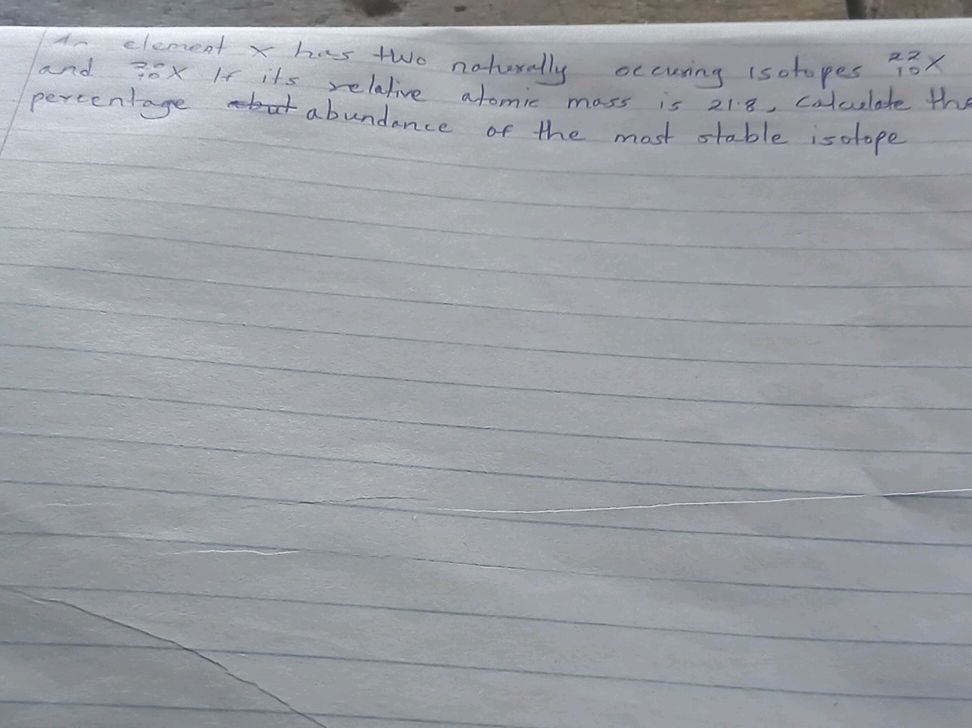 An element x has two naturally occuring isotopes ²²₁₀X
and ²⁰₁₀X If its relative atomic mass is 21.8, calculate the
percentage abut abundance of the most stable isotope